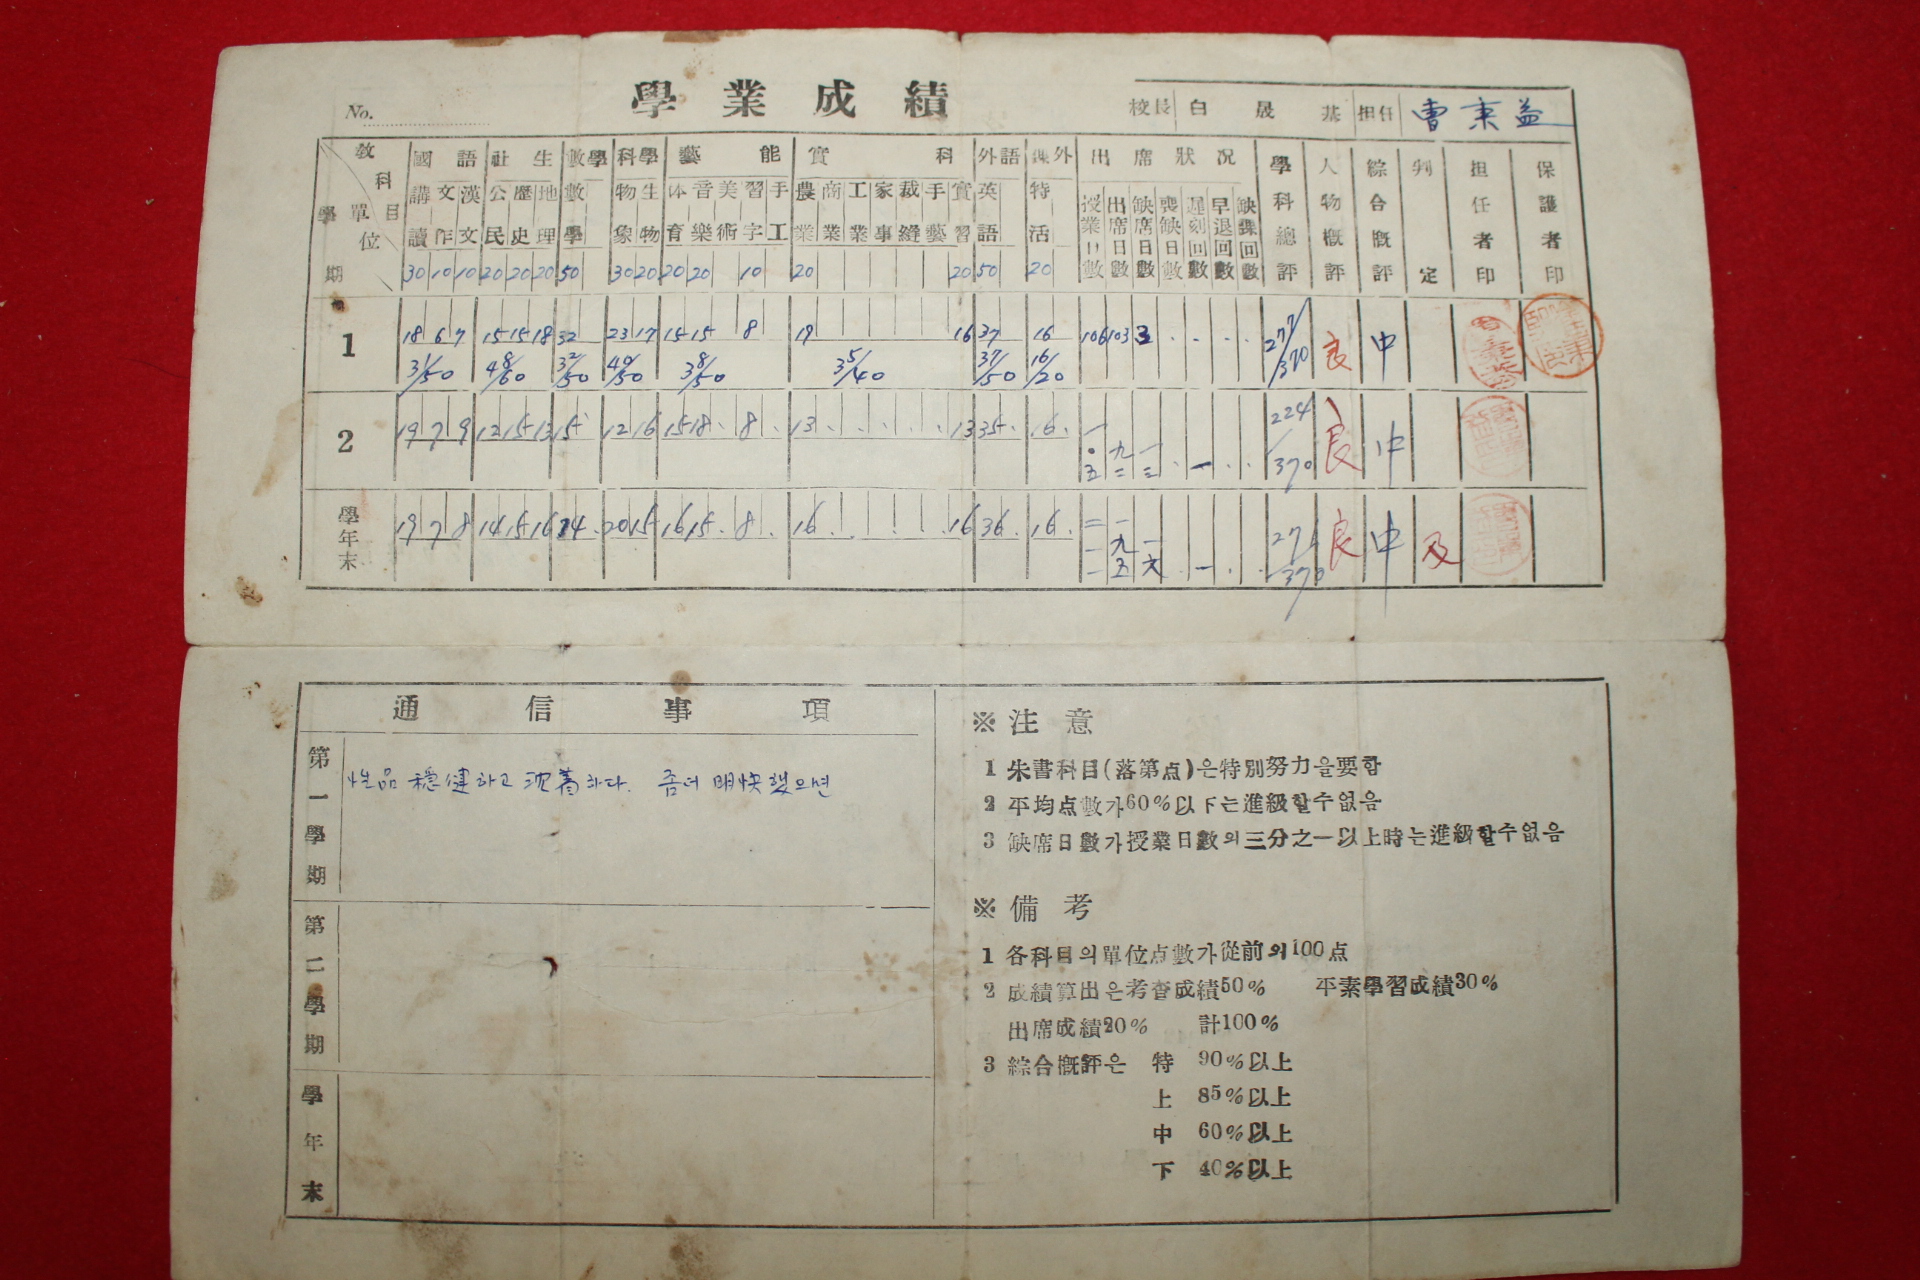 No.
學業成績
校長 白晟基 担任 曹秉益
敎科目 單位 學期
國語 社生 數學 科學 藝能 實科 外語 課外 出席狀况 學科總評 人物概評 綜合概評 判定 担任者印 保護者印
講讀 文作 漢文 公民 歷史 地理 數學 物象 生物 体育 音樂 美術 習字 手工 農業 商業 工業 家事 裁縫 手藝 實習 英語 特活 授業日數 出席日數 缺席日數 喪缺日數 遲刻回數 早退回數 缺課回數
30 10 10 20 20 20 50 30 20 20 20 10 20 20 50 20
1 18 6 7 15 15 18 32 23 17 15 15 8 19 16 37 16 106 103 3 277/370 良 中
31/50 48/60 32/50 40/50 38/50 35/40 37/50 16/20
2 19 7 9 12 15 13 15 12 16 15 18 8 13 13 35 16 一〇五 九二 一三 一 224/370 良 中
學年末 19 7 8 14 15 16 24 20 15 16 15 8 16 16 36 16 二一一 一九五 一六 一 271/370 良 中 及
通信事項
第一學期 性品 穩健하고 沈着하다. 좀더 明快했으면
第二學期
學年末
※ 注意
1 朱書科目(落第点)은特別努力을要함
2 平均点數가60%以下는進級할수없음
3 缺席日數가授業日數의三分之一以上時는進級할수없음
※ 備考
1 各科目의單位点數가從前의100点
2 成績算出은考査成績50% 平素學習成績30%
出席成績20% 計100%
3 綜合概評은 特 90%以上
上 85%以上
中 60%以上
下 40%以上